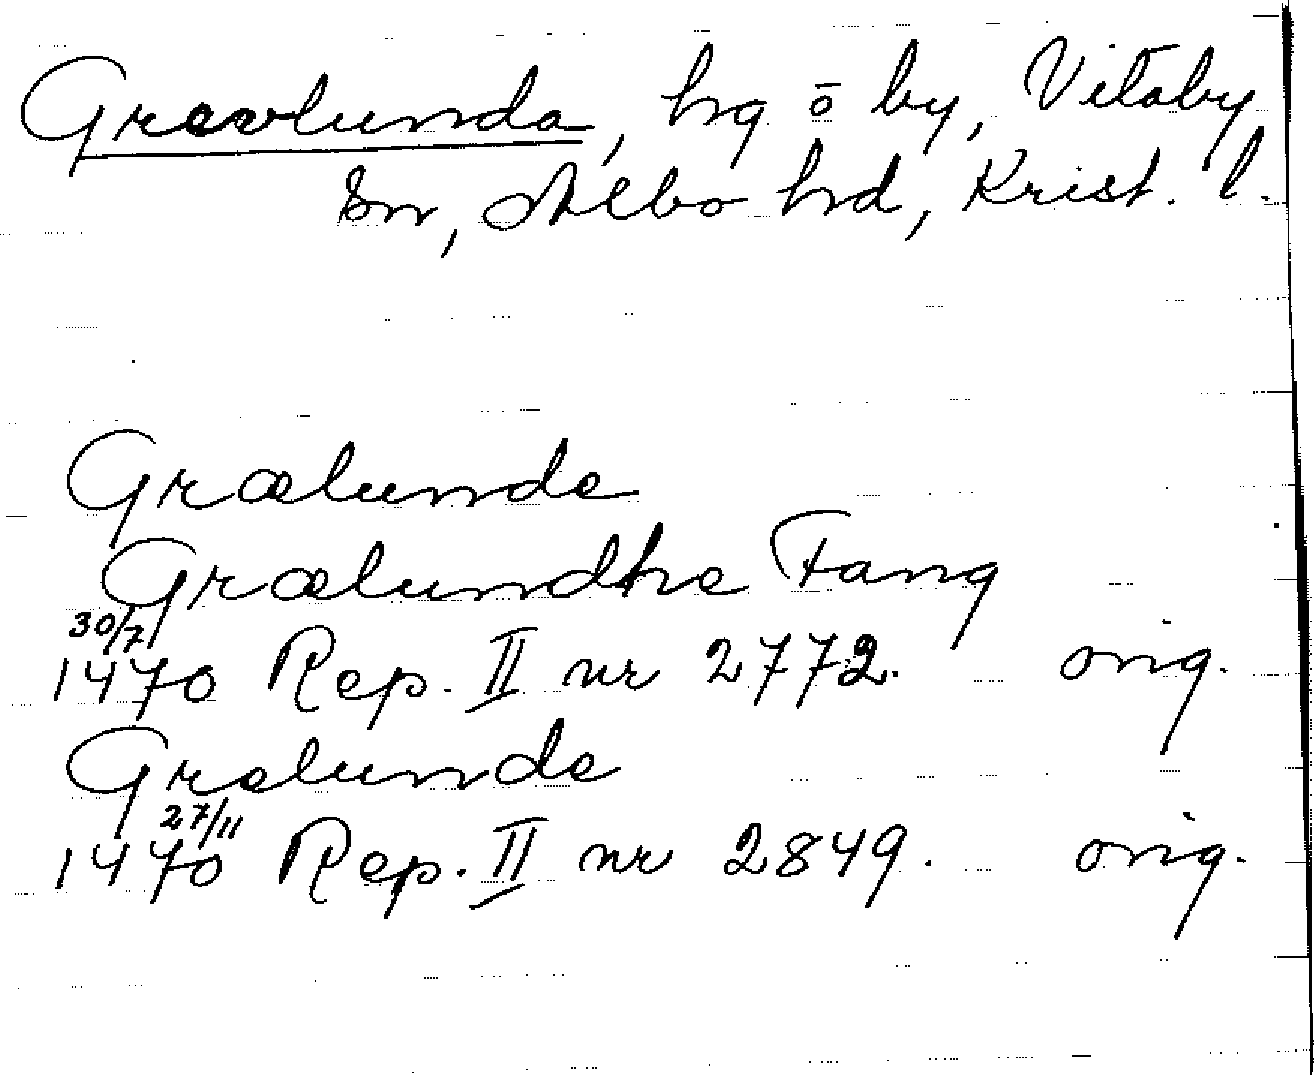 Grevlunda, hg ō by, Vitaby
sn, Albo hd, Krist. l.
Grælunde
Grælundhe Fang
30/7
1470 Rep. II nr 2772. orig.
Grelunde
27/11
1470 Rep. II nr 2849. orig.